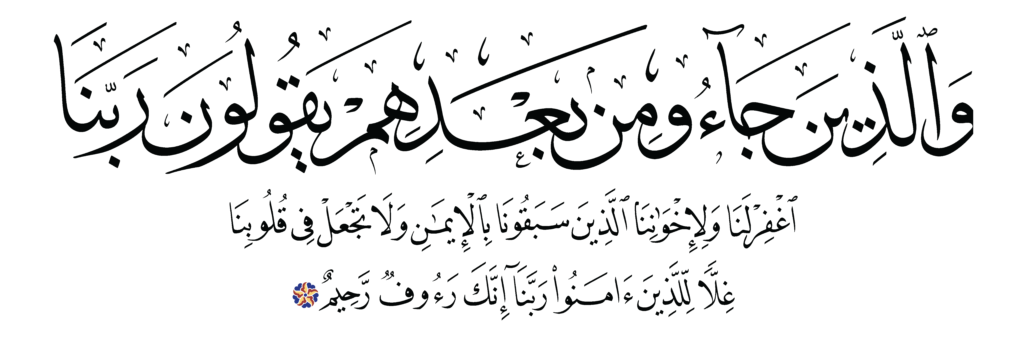 وَٱلَّذِينَ جَآءُو مِنۢ بَعْدِهِمْ يَقُولُونَ رَبَّنَا
ٱغْفِرْ لَنَا وَلِإِخْوَٰنِنَا ٱلَّذِينَ سَبَقُونَا بِٱلْإِيمَٰنِ وَلَا تَجْعَلْ فِى قُلُوبِنَا
غِلًّا لِّلَّذِينَ ءَامَنُوا۟ رَبَّنَآ إِنَّكَ رَءُوفٌ رَّحِيمٌ